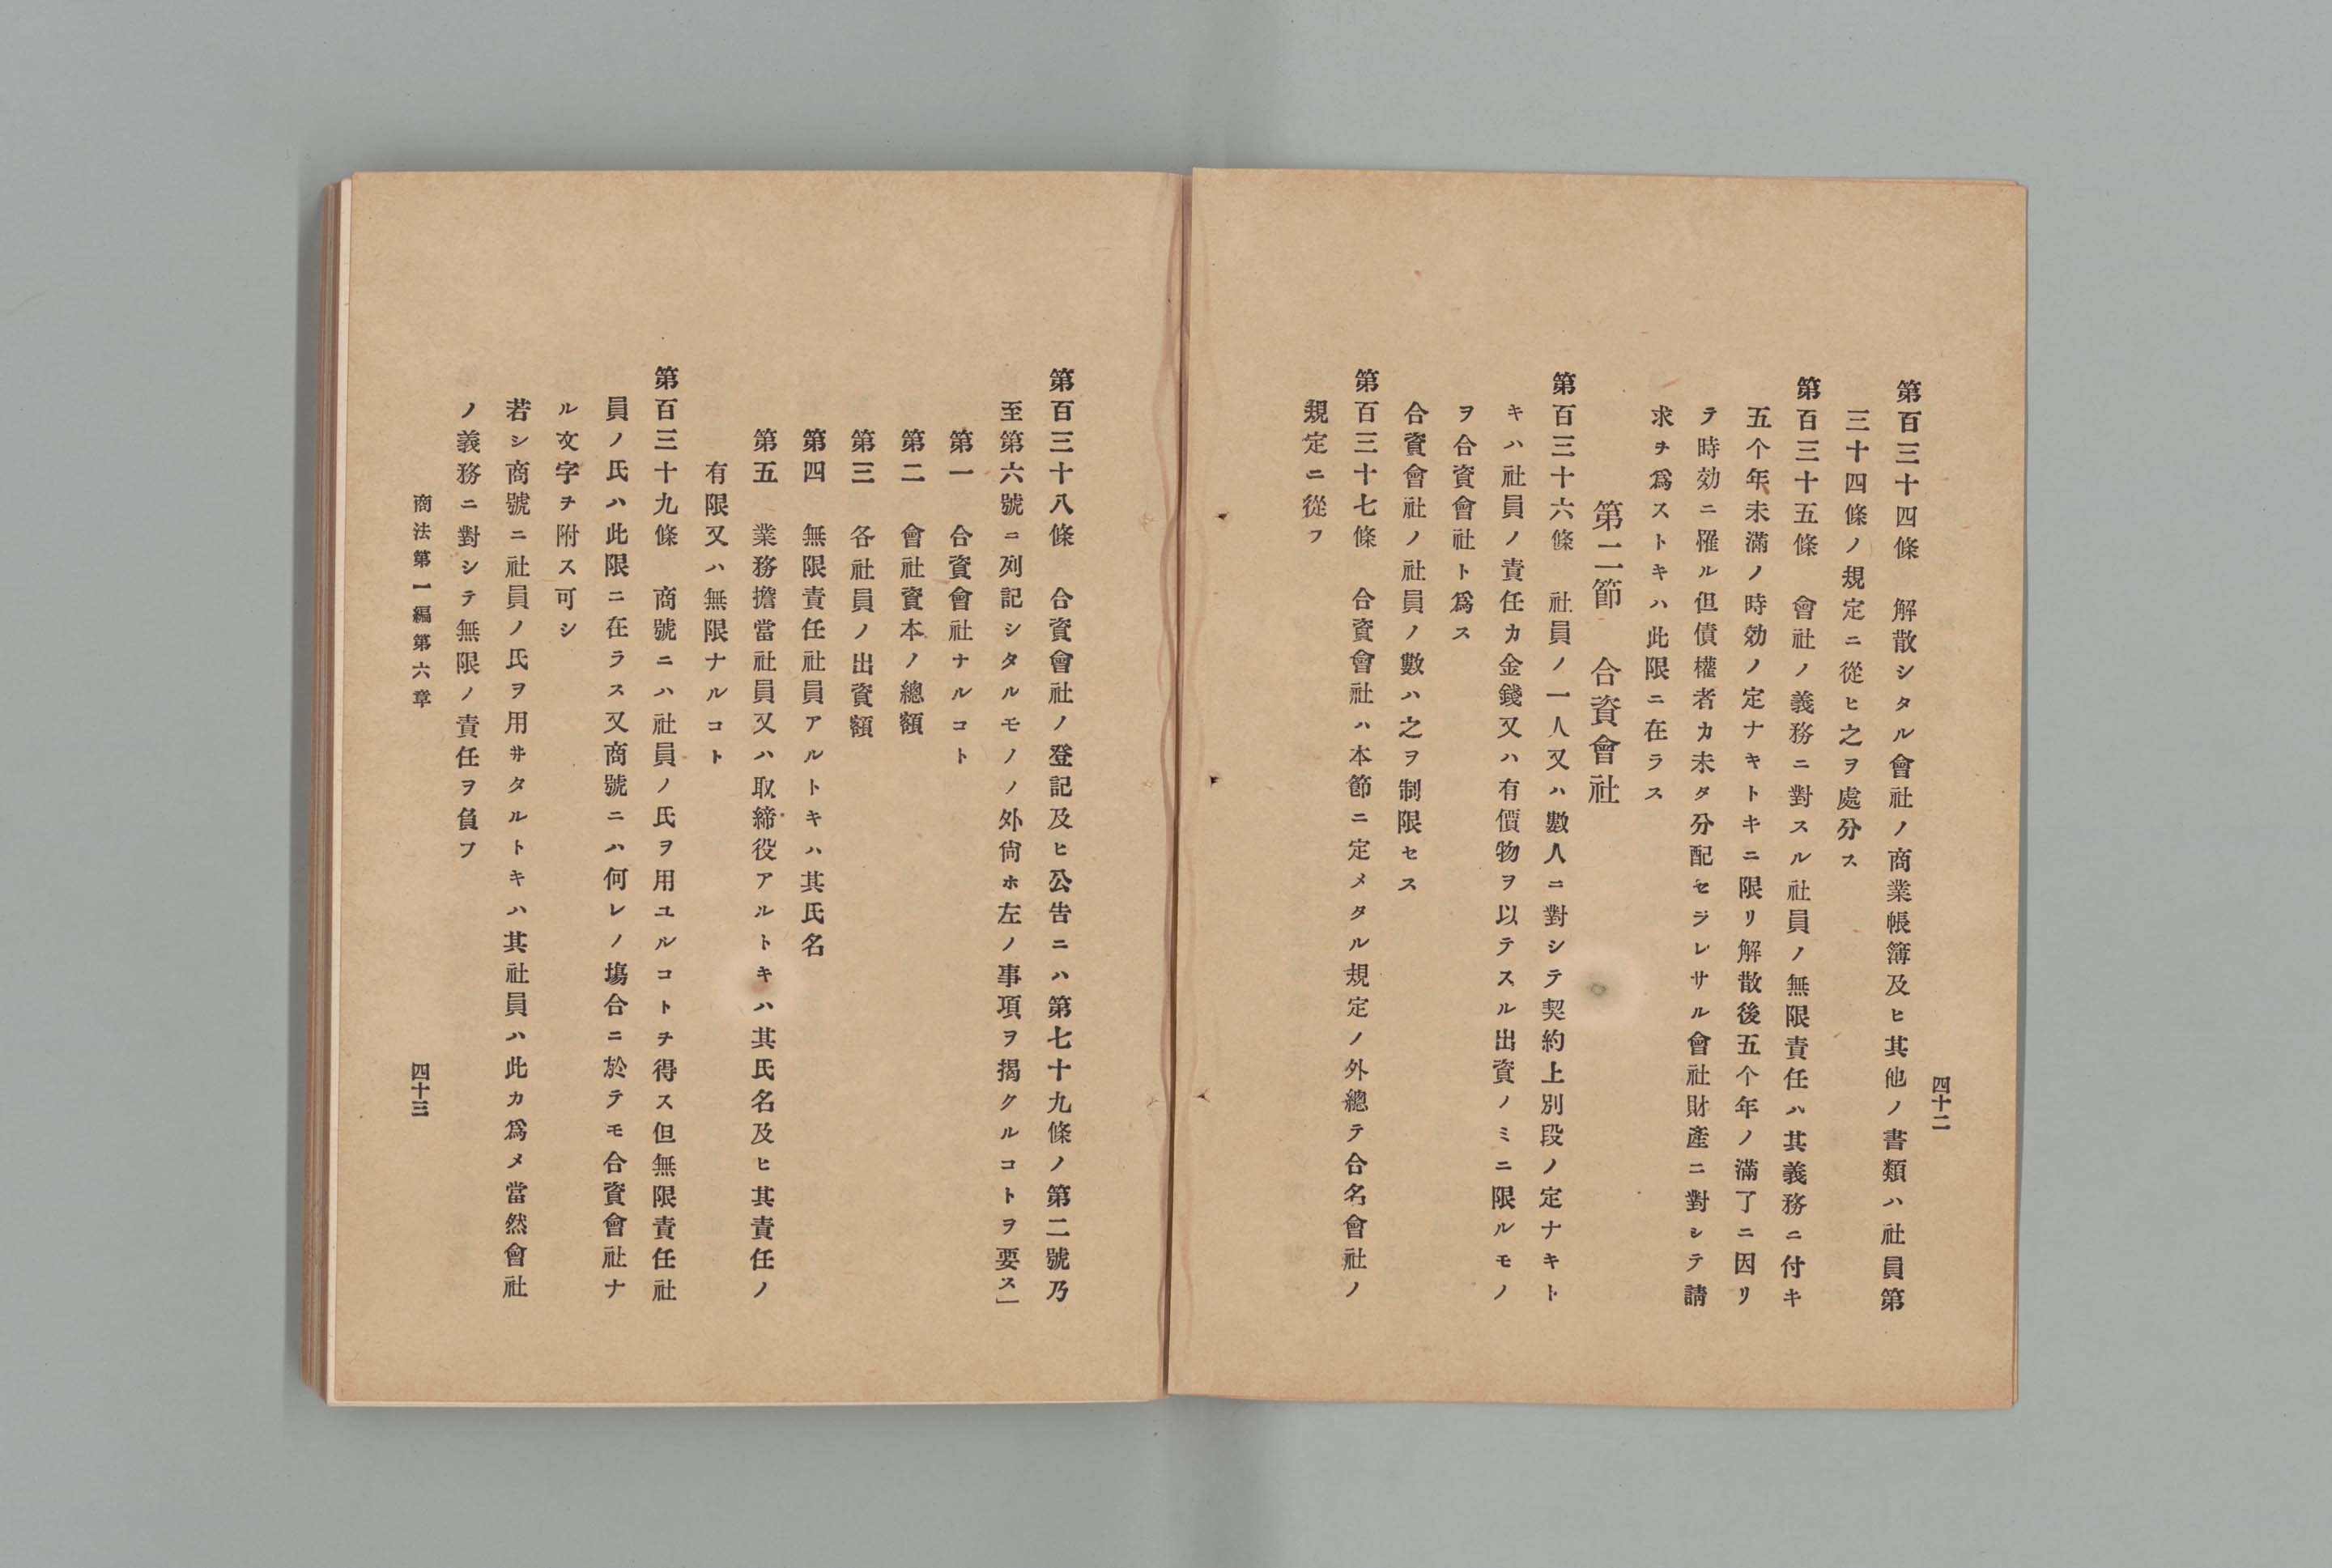 四十二
第百三十四條　解散シタル會社ノ商業帳簿及ヒ其他ノ書類ハ社員第
三十四條ノ規定ニ從ヒ之ヲ處分ス
第百三十五條　會社ノ義務ニ對スル社員ノ無限責任ハ其義務ニ付キ
五个年未滿ノ時効ノ定ナキトキニ限リ解散後五个年ノ滿了ニ因リ
テ時効ニ罹ル但債權者カ未タ分配セラレサル會社財產ニ對シテ請
求チ爲ストキハ此限ニ在ラス
第二節　合資會社
第百三十六條　社員ノ一人又ハ數人ニ對シテ契約上別段ノ定ナキト
キハ社員ノ責任カ金錢又ハ有價物ヲ以テスル出資ノミニ限ルモノ
ヲ合資會社ト爲ス
合資會社ノ社員ノ數ハ之ヲ制限セス
第百三十七條　合資會社ハ本節ニ定メタル規定ノ外總テ合名會社ノ
規定ニ從フ
第百三十八條　合資會社ノ登記及ヒ公告ニハ第七十九條ノ第二號乃
至第六號ニ列記シタルモノノ外尙ホ左ノ事項ヲ揭クルコトヲ要ス」
第一　合資會社ナルコト
第二　會社資本ノ總額
第三　各社員ノ出資額
第四　無限責任社員アルトキハ其氏名
第五　業務擔當社員又ハ取締役アルトキハ其氏名及ヒ其責任ノ
有限又ハ無限ナルコト
第百三十九條　商號ニハ社員ノ氏ヲ用ユルコトチ得ス但無限責任社
員ノ氏ハ此限ニ在ラス又商號ニハ何レノ塲合ニ於テモ合資會社ナ
ル文字チ附ス可シ
若シ商號ニ社員ノ氏ヲ用ヰタルトキハ其社員ハ此カ爲メ當然會社
ノ義務ニ對シテ無限ノ責任ヲ負フ
商法第一編第六章
四十三